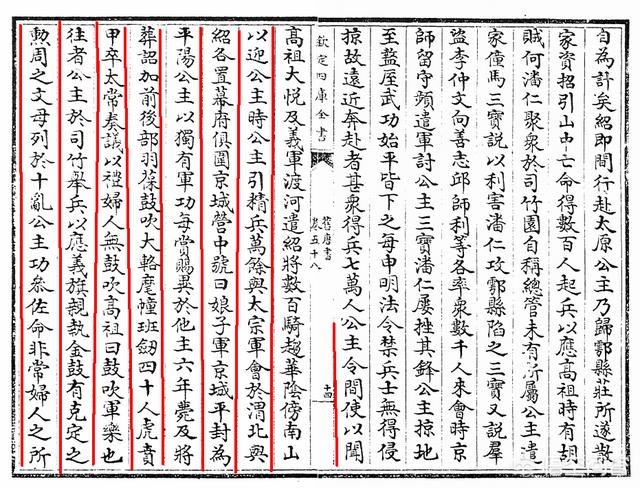 自為計矣紹即間行赴太原公主乃歸鄠縣莊所遂散
家資招引山中亡命得數百人起兵以應高祖時有胡
賊何潘仁聚衆於司竹園自稱總管未有所屬公主遣
家僮馬三寶說以利害潘仁攻鄠縣陷之三寶又說羣
盜李仲文向善志邱師利等各率衆數千人來會時京
師留守頻遣軍討公主三寶潘仁屢挫其鋒公主掠地
至盩厔武功始平皆下之每申明法令禁兵士無得侵
掠故遠近奔赴者甚衆得兵七萬人公主令間使以聞
欽定四庫全書
舊唐書
卷五十八
十四
高祖大悅及義軍渡河遣紹將數百騎趨華陰傍南山
以迎公主時公主引精兵萬餘與太宗軍會於渭北與
紹各置幕府俱圍京城營中號曰娘子軍京城平封為
平陽公主以獨有軍功每賞賜異於他主六年薨及將
葬詔加前後部羽葆鼓吹大輅麾幢班劒四十人虎賁
甲卒太常奏議以禮婦人無鼓吹高祖曰鼓吹軍樂也
往者公主於司竹舉兵以應義旗親執金鼓有克定之
勲周之文母列於十亂公主功叅佐命非常婦人之所